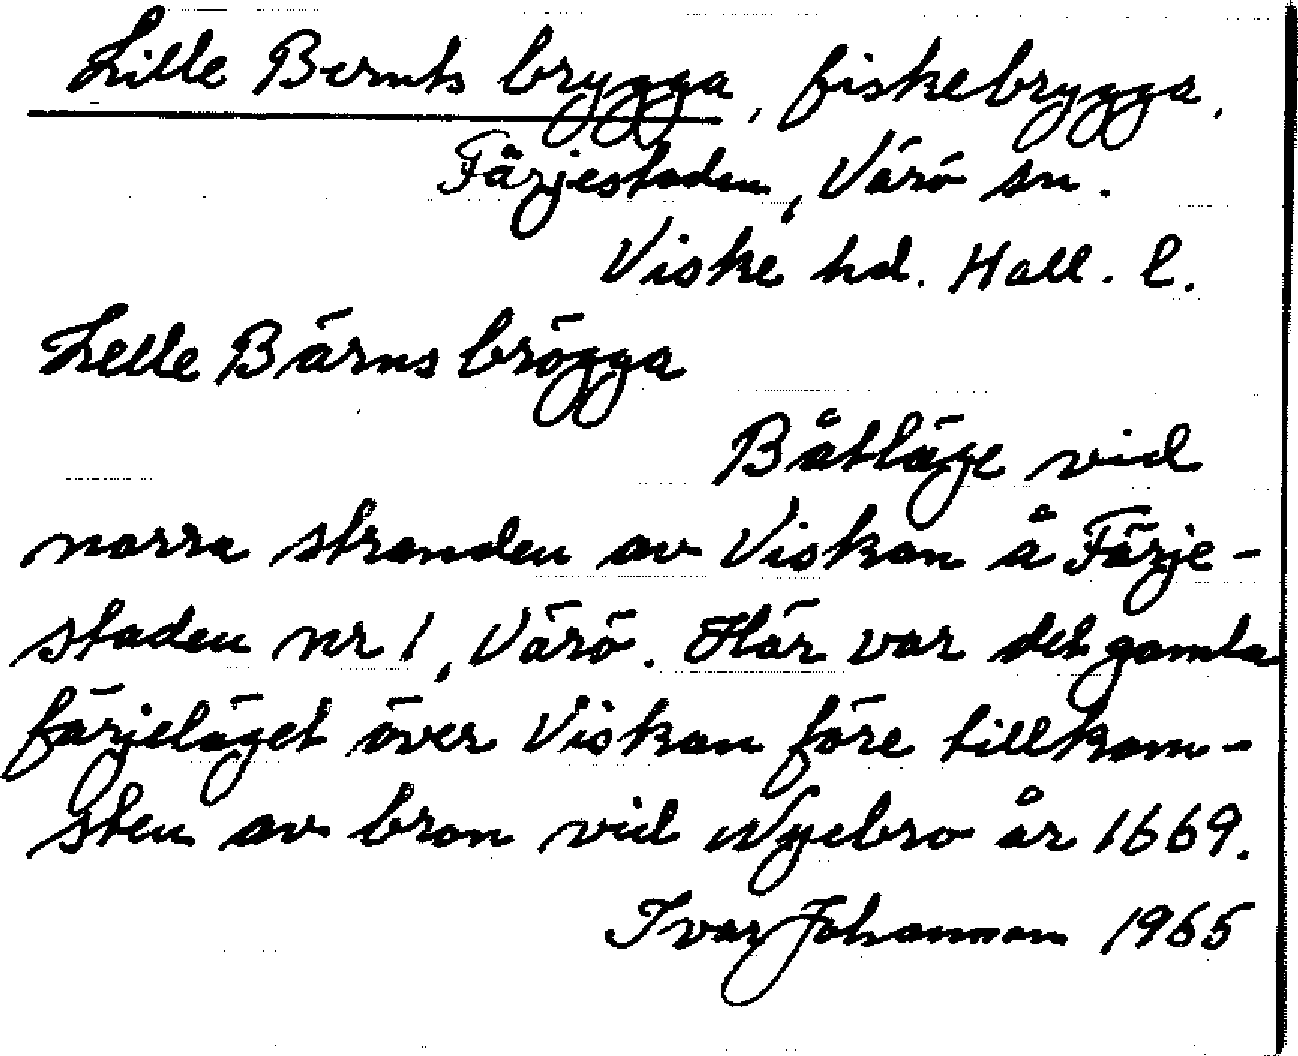 Lille Bernts brygga, fiskebrygga,
Färjestaden, Värö sn.
Viske hd. Hall. l.
Lelle Bärns brögga
Båtläge vid
norra stranden av Viskan å Färje-
staden nr 1, Värö. Här var det gamla
färjeläget över Viskan före tillkom-
sten av bron vid Nyebro år 1669.
Ivar Johansson 1965